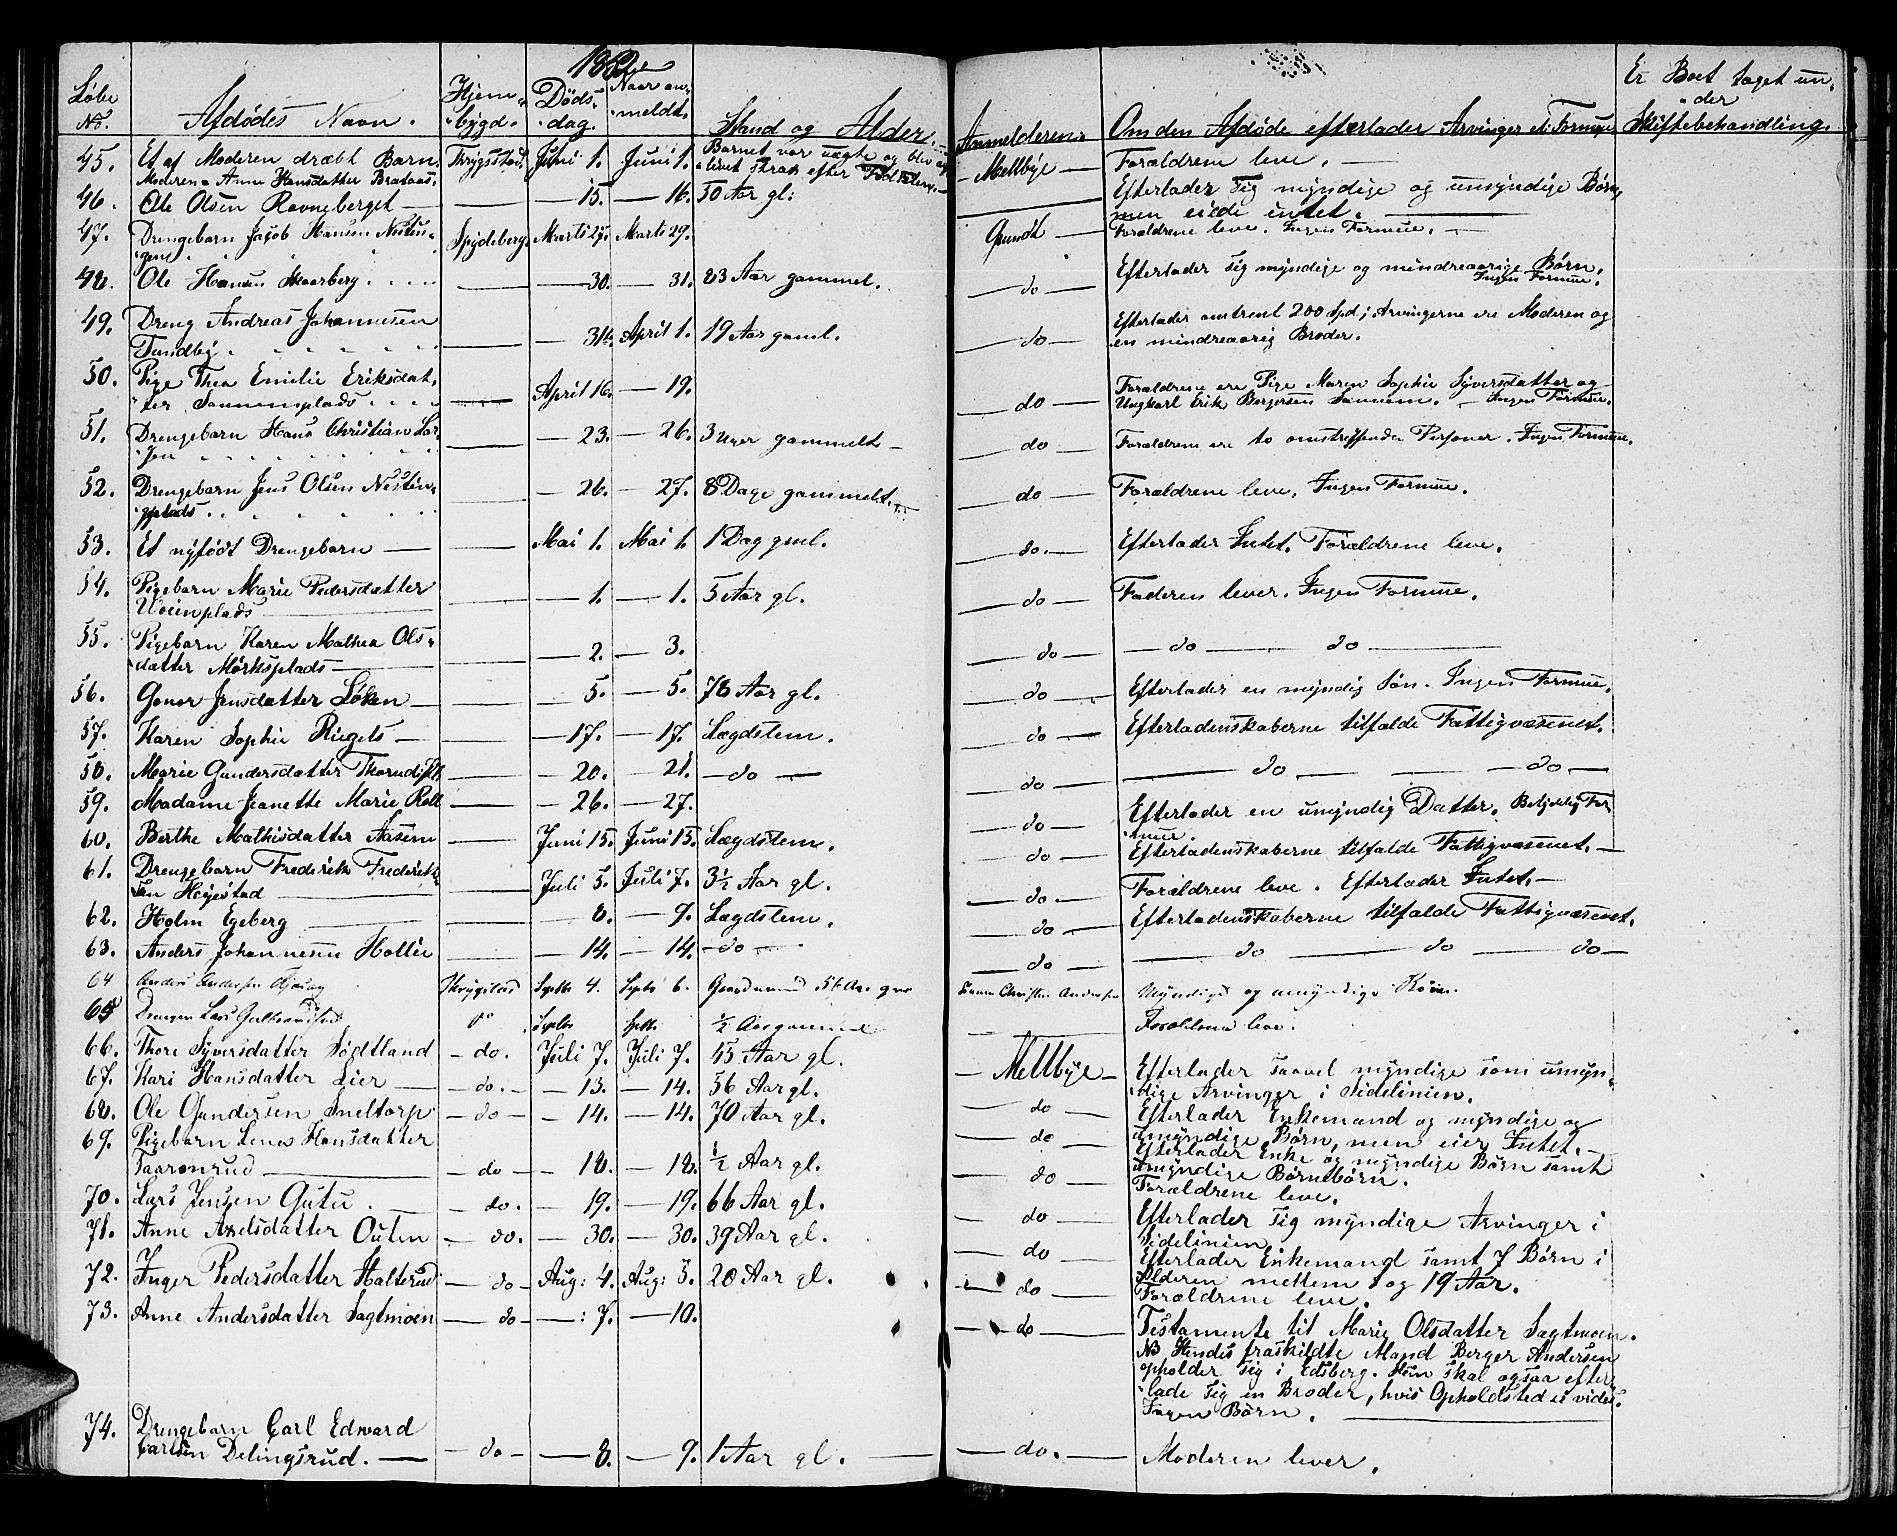 1862
Løbe No. Afdødes Navn. Hjembygd. Dødsdag. Naar anmeldt. Stand og Alder. Anmelderen. Om den Afdøde efterlader Arvinger el. Formue Er Boet taget under Skiftebehandling.
45. Et af Moderen dræbt Barn. Trygstad Juni 1. Juni 1. Barnet var uægte og blev
Moderen Anne Hansdatter strax efter Fødselen. Mellbye Forældrene leve.
46. Ole Olsen Ravneberget 15. 16. 50 Aar gl. Efterlader sig myndige og umyndige Børn,
men eiede intet.
47. Drengebarn Jacob Hansen Spydeberg Marts 27. Marts 29. Grundt Forældrene leve. Ingen Formue.
48. Ole Hansen Skaarberg 30. 31. 83 Aar gammel. do Efterlader sig myndige og mindreaarige Børn.
Ingen Formue.
49. Dreng Andreas Johannesen
Tundby 31te April 1. 19 Aar gaml. do Efterlader omtrent 200 Spd; Arvingerne ere Moderen og
en mindreaarig Broder.
50. Pige Thea Emilie Eriksdat,
ter Sannemplads April 16. 19. do Forældrene ere Pige Maren Sophie Syversdatter og
Ungkarl Erik Borgersen Sannem. Ingen Formue.
51. Drengebarn Hans Christian Lar,
sen 23. 26. 3 Uger gammelt do Forældrene ere to omstreiffende Personer. Ingen Formue.
52. Drengebarn Jens Olsen
plads 26. 27. 8 Dage gammelt. do Forældrene leve. Ingen Formue.
53. Et nyfødt Drengebarn Mai 1. Mai 1. 1 Dag gml. do Efterlader Intet. Forældrene leve.
54. Pigebarn Marie Pedersdatter
Uoienplads 1. 1. 5 Aar gl. do Faderen lever. Ingen Formue.
55. Pigebarn Karen Mathea Ols,
datter Mørksplads 2. 3. do do do
56. Gunor Jensdatter Løken 5. 5. 78 Aar gl. do Efterlader en myndig Søn. Ingen Formue.
57. Karen Sophie Riegels 17. 17. Lægdslem. do Efterladenskaberne tilfalde Fattigvæsenet.
58. Marie Gundersdatter 20. 21. do do do do
59. Madame Jeanette Marie Roll 26. 27. do Efterlader en umyndig Datter. Betydelig For,
mue.
60. Berthe Mathisdatter Aasem Juni 15. Juni 15. Lægdslem. do Efterladenskaberne tilfalde Fattigvæsenet.
61. Drengebarn Frederik Frederik,
sen Hejestad Juli 5. Juli 7. 3½ Aar gl. do Forældrene leve. Efterlader Intet.
62. Holm Egeberg 8. 9. Lægdslem. do Efterladenskaberne tilfalde Fattigvæsenet.
63. Anders Johannesen Hollie 14. 14. do do do do do
64 Anders Andersen Trygstad Septb 4. Septb 6. Gaardmand 56 Aar Christian Andersen Myndige og umyndige
65 Drengen Lars Gulbrandsen do Septbr Septbr ½ Aar gammel Forældrene leve.
66. Thore Syversdatter Sødtland do. Juli 7. Juli 7. 45 Aar gl. Mellbye Efterlader saavel myndige som umyn,
dige Arvinger i Sidelinien.
67. Kari Hansdatter Lier do. 13. 14. 56 Aar gl. do Efterlader Enkemand og myndige og
umyndige Børn, men eier Intet.
68. Ole Gundersen Sneltorp do 14. 14. 70 Aar gl. do Efterlader Enke og myndige Børn samt
umyndige Børnebørn.
69. Pigebarn Lena Hansdatter
Taaronrud do 18. 18. ½ Aar gl. do Forældrene leve.
70. Lars Jensen Gutu. do. 19. 19. 66 Aar gl. do Efterlader sig myndige Arvinger i
Sidelinien.
71. Anne Axelsdatter Outen do. 30. 30. 39 Aar gl. do Efterlader Enkemand samt 7 Børn i
Alderen mellem 1 og 19 Aar.
72. Inger Pedersdatter Halterud do Aug: 4. Aug: 5. 20 Aar gl. do Forældrene leve.
73. Anne Andersdatter Sagtmoen do : 7. 10. do Testamente til Marie Olsdatter Sagtmoen.
NB Hendes fraskildte Mand Berger Andersen
opholder sig i Edsberg. Hun skal ogsaa efter,
lade sig en Broder, hvis Opholdsted ei vides.
Ingen Børn.
74. Drengebarn Carl Edward
Carlsen Delingsrud. do 8. 9. 1 Aar gl. do. Moderen lever.